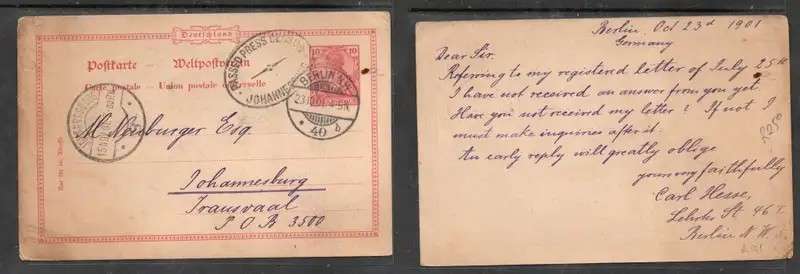 Deutschland
Postkarte — Weltpostverein
Carte postale — Union postale universelle
10
10
PASSED PRESS CENSOR
JOHANNES
BERLIN N.W.
40 b
M Neuburger Esq.
Johannesburg
Transvaal
P O B 3500
Berlin, Oct 23d 1901
Germany
Dear Sir.
Referring to my registered letter of July 25th
I have not received an answer from you yet.
Have you not received my letter? If not I
must make inquiries after it.
An early reply will greatly oblige
yours very faithfully
Carl Hesse,
Lehrter St. 46 I.
Berlin N. W.